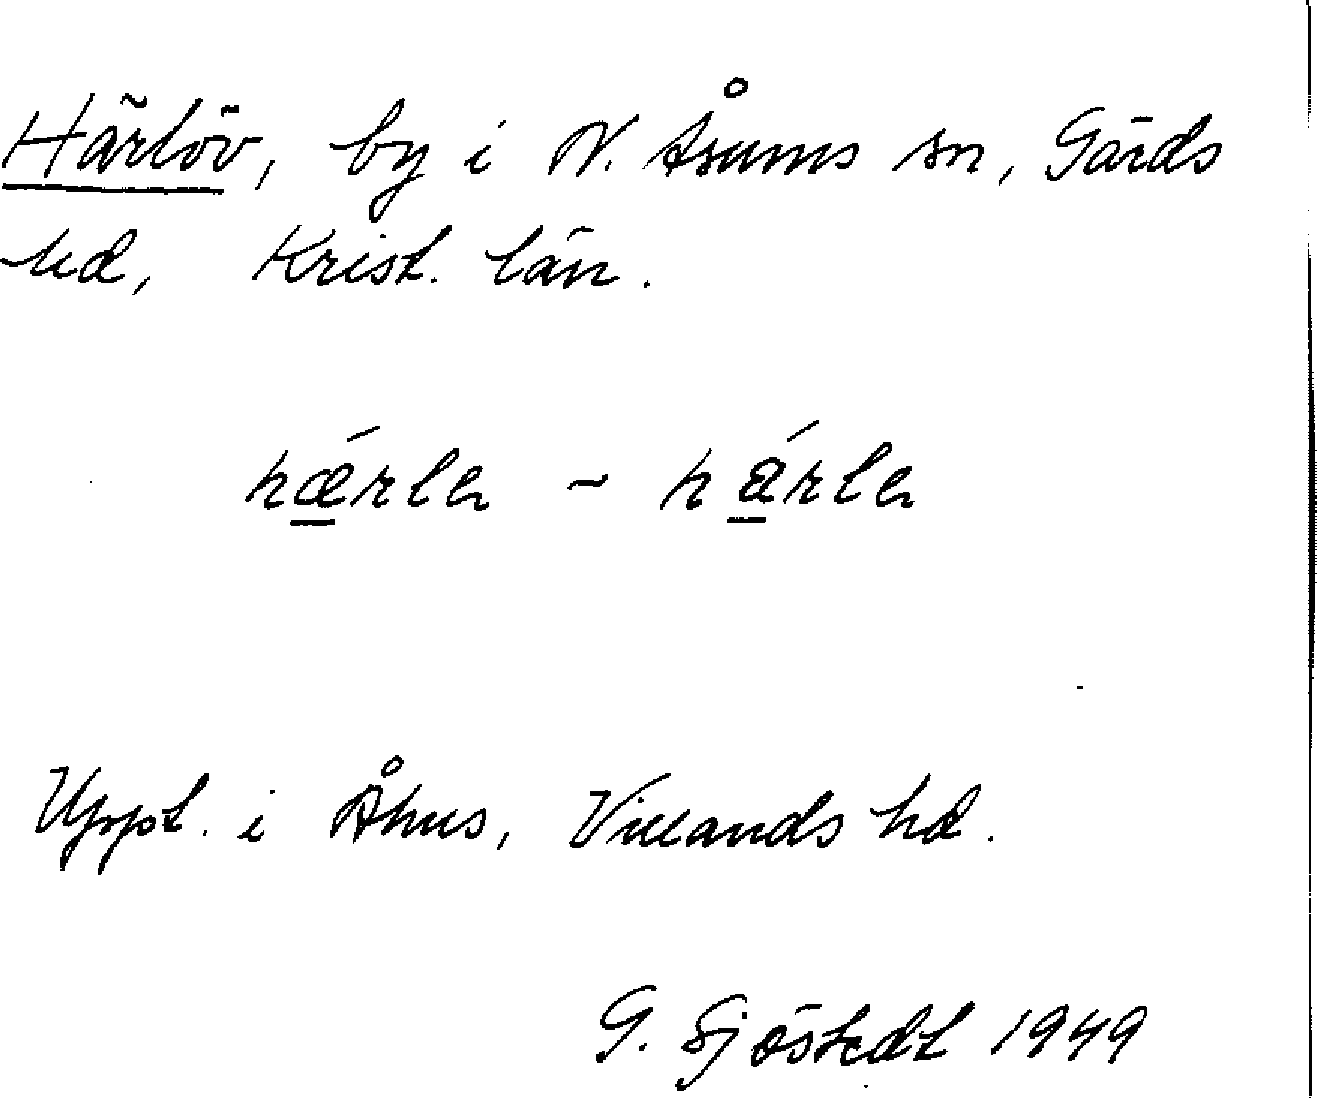 Härlöv, by i N. Åsums sn, Gärds
hd, Krist. län.
hǽrlea ~ hárlea
Uppt. i Åhus, Villands hd.
G. Sjöstedt 1949